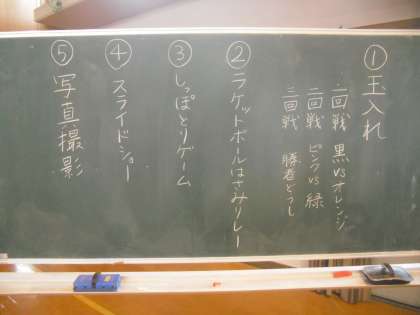 ① 玉入れ
一回戦 黒VSオレンジ
二回戦 ピンクVS緑
三回戦 勝者どうし
② ラケットボールはさみリレー
③ しっぽとりゲーム
④ スライドショー
⑤ 写真撮影